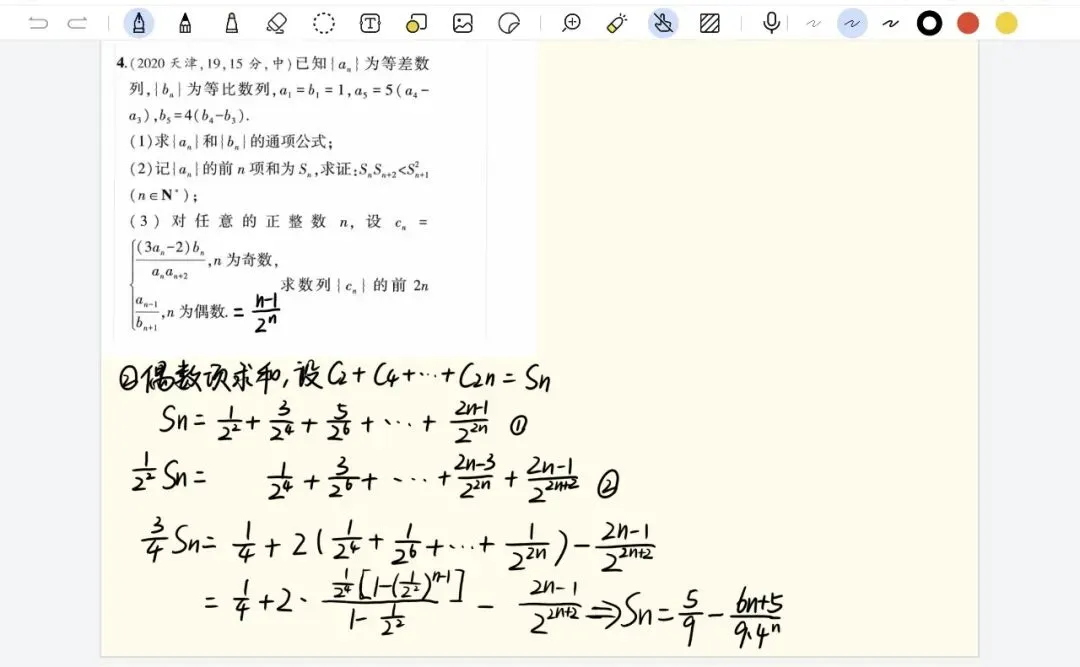 4.(2020 天津,19,15 分,中)已知{aₙ}为等差数
列,{bₙ}为等比数列,a₁=b₁=1,a₅=5(a₄-
a₃),b₅=4(b₄-b₃).
(1)求{aₙ}和{bₙ}的通项公式;
(2)记{aₙ}的前 n 项和为 Sₙ,求证:SₙSₙ₊₂<S²ₙ₊₁
(n∈N*);
(3)对任意的正整数 n,设 cₙ=
{(3aₙ-2)bₙ/(aₙaₙ₊₂),n 为奇数,
求数列{cₙ}的前 2n
aₙ₋₁/bₙ₊₁,n 为偶数. = (n-1)/2ⁿ
②偶数项求和,设C₂+C₄+…+C₂ₙ=Sn
Sn=1/2²+3/2⁴+5/2⁶+…+(2n-1)/2²ⁿ ①
1/2² Sn= 1/2⁴+3/2⁶+…+(2n-3)/2²ⁿ+(2n-1)/2²ⁿ⁺² ②
3/4 Sn=1/4+2(1/2⁴+1/2⁶+…+1/2²ⁿ)-(2n-1)/2²ⁿ⁺²
=1/4+2·(1/2⁴[1-(1/2²)ⁿ⁻¹])/(1-1/2²)-(2n-1)/2²ⁿ⁺²⇒Sn=5/9-(6n+5)/(9·4ⁿ)